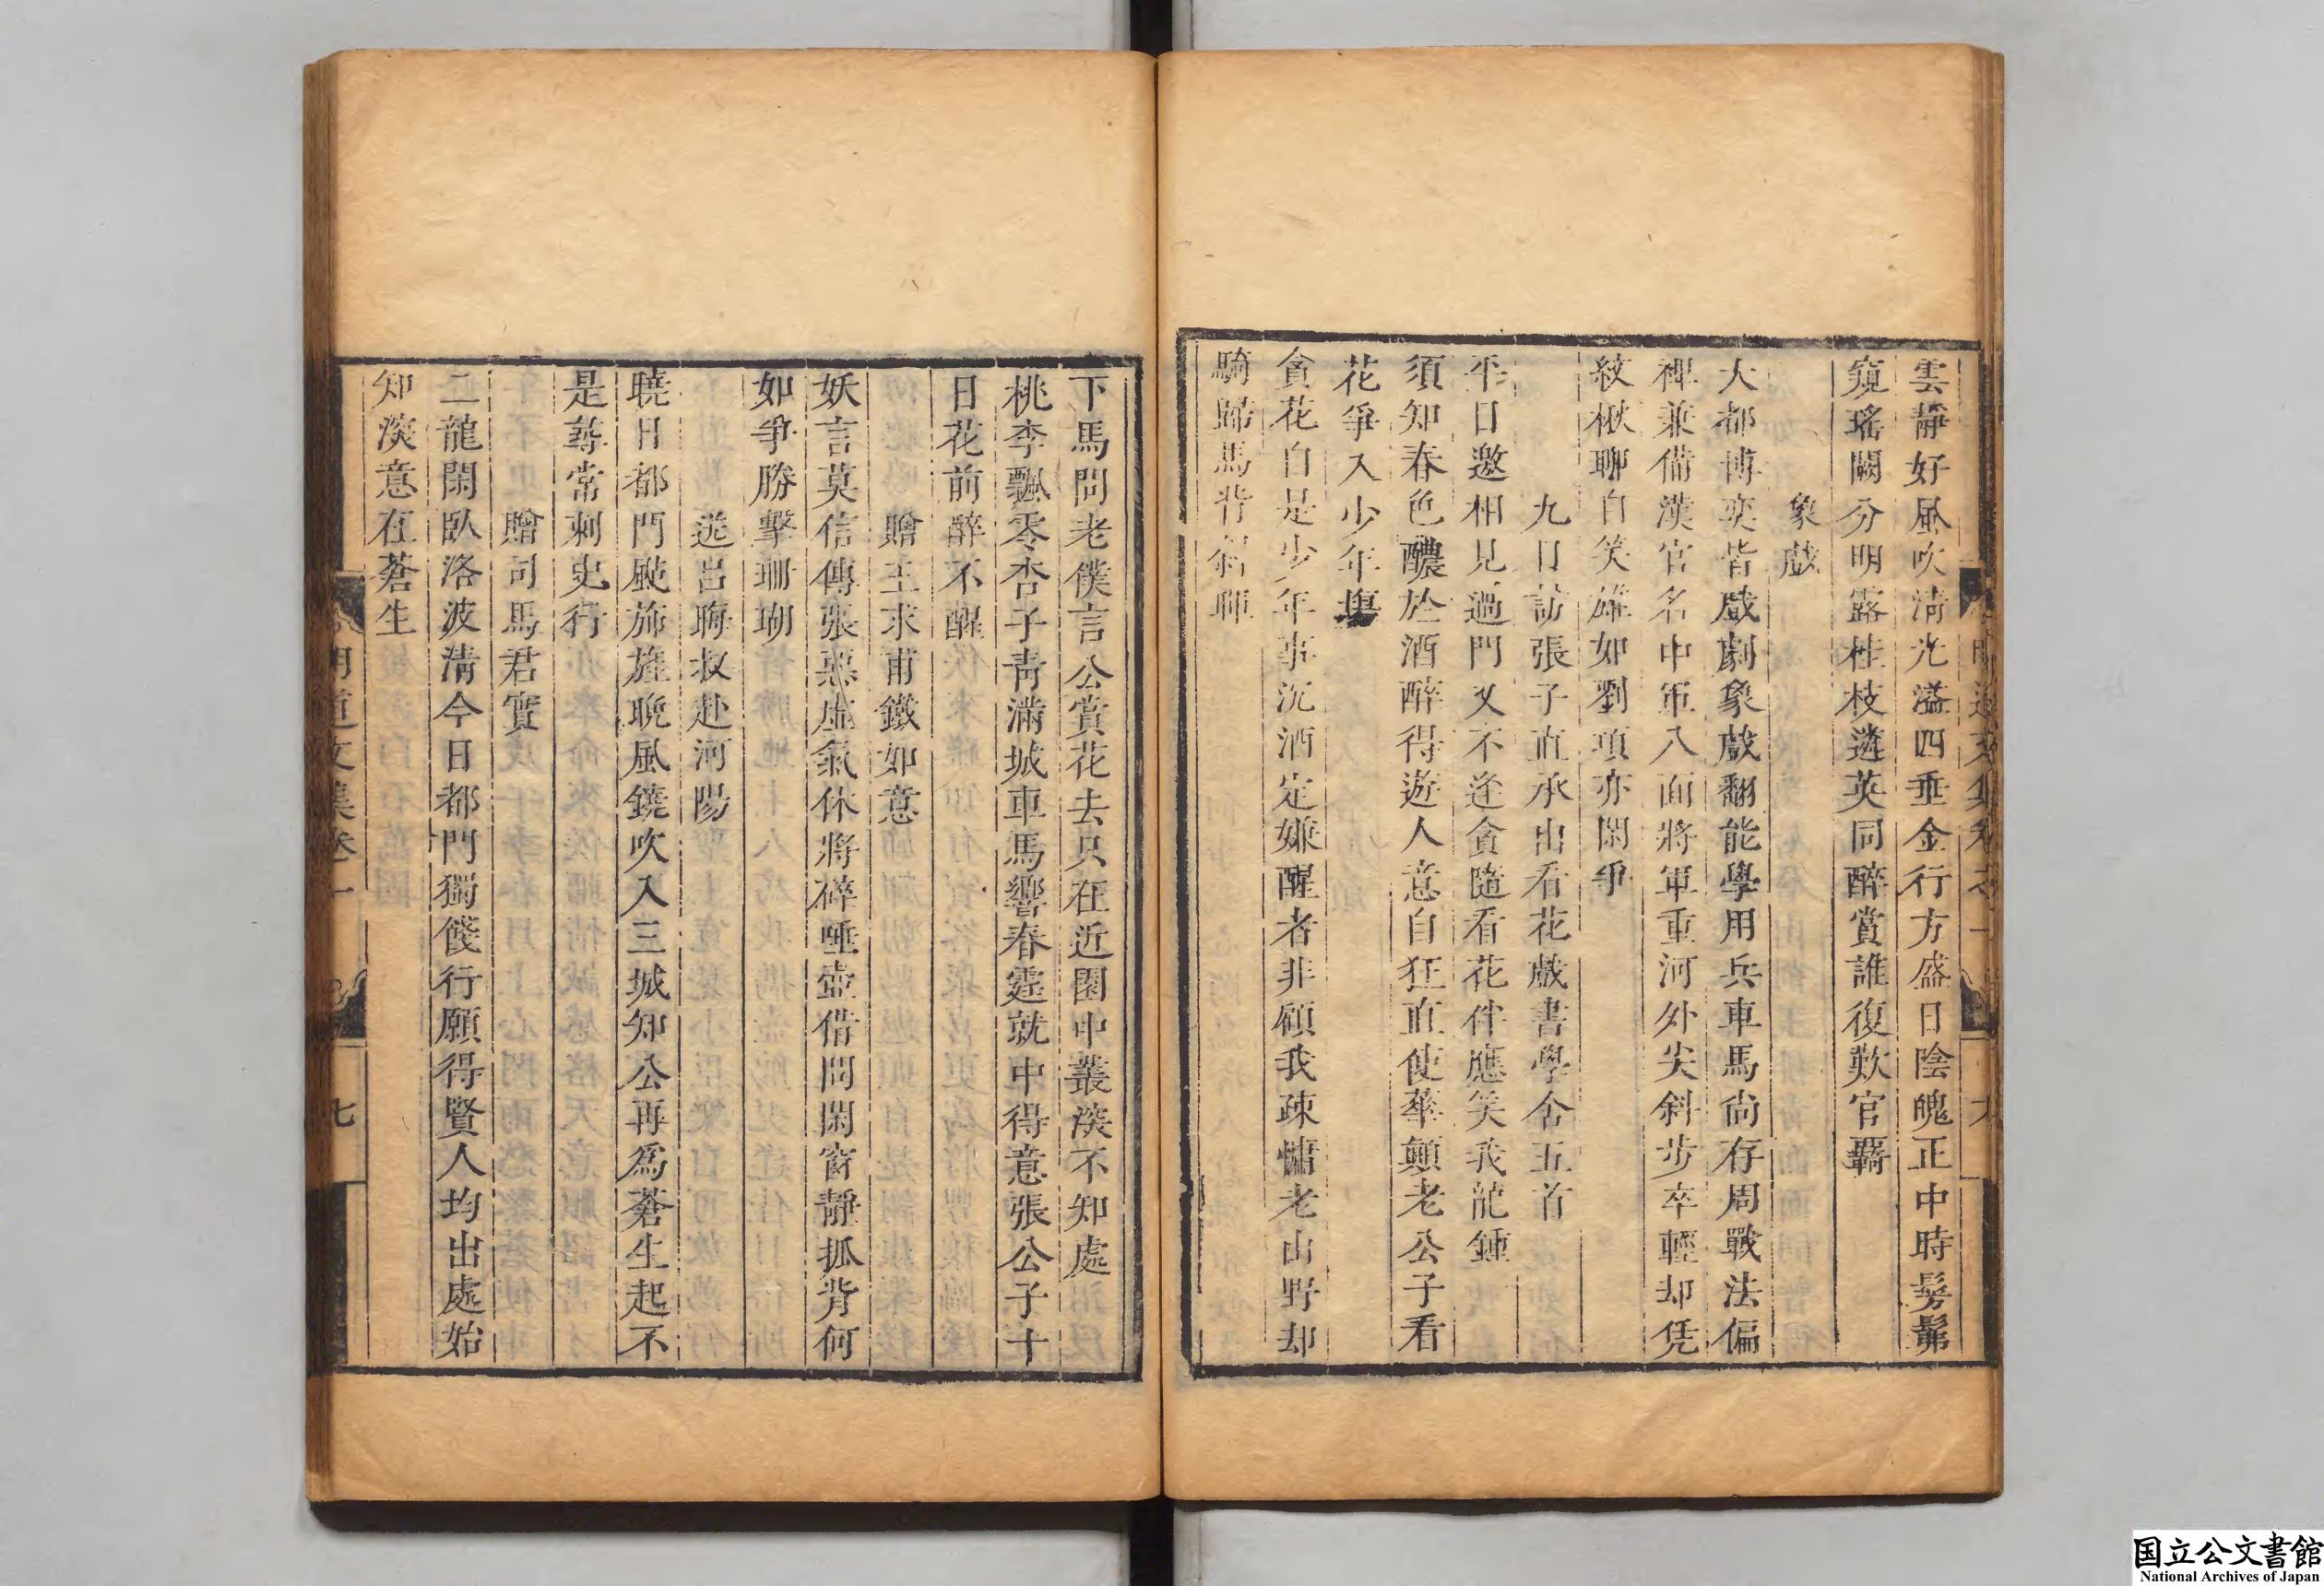 雲靜好風吹淸光溢四垂金行方盛日陰魄正中時髣髴
窺瑤闕分明露桂枝遴英同醉賞誰復歎官羇
象戲
大都博奕皆戲劇象戲翻能學用兵車馬尙存周戰法偏
裨兼備漢官名中軍八面將軍重河外尖斜步卒輕却凭
紋楸聊自笑雄如劉項亦閑爭
九日訪張子直承出看花戲書學舍五首
平日邀相見過門又不逢貪隨看花伴應笑我龍鍾
須知春色醲於酒醉得遊人意自狂直使華顛老公子看
花爭入少年塲
貪花自是少年事沉酒定嫌醒者非顧我疎慵老山野却
騎歸馬背斜暉
下馬問老僕言公賞花去只在近園中叢深不知處
桃李飄零杏子靑滿城車馬響春霆就中得意張公子十
日花前醉不醒
贈王求甫鐵如意
妖言莫信傳張惡虛氣休將碎唾壺借問閑窗靜孤背何
如爭勝擊珊瑚
送呂晦叔赴河陽
曉日都門颭旆旌晚風鐃吹入三城知公再爲蒼生起不
是尋常刺史行
贈司馬君實
二龍閑臥洛波淸今日都門獨餞行願得賢人均出處始
知深意在蒼生
明道文集卷一
七
国立公文書館
National Archives of Japan